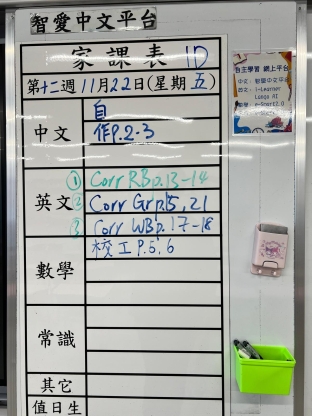 智愛中文平台
家課表 1D
第十二週 11月22日(星期五)
中文
自
作P.2-3
英文
① Corr RB p.13-14
② Corr Gr p.15, 21
③ Corr WB p.17-18
數學
校工P.5,6
常識
其它
值日生
自主學習 網上平台
中文: 智愛中文平台
英文: i-Learner
Lango AI